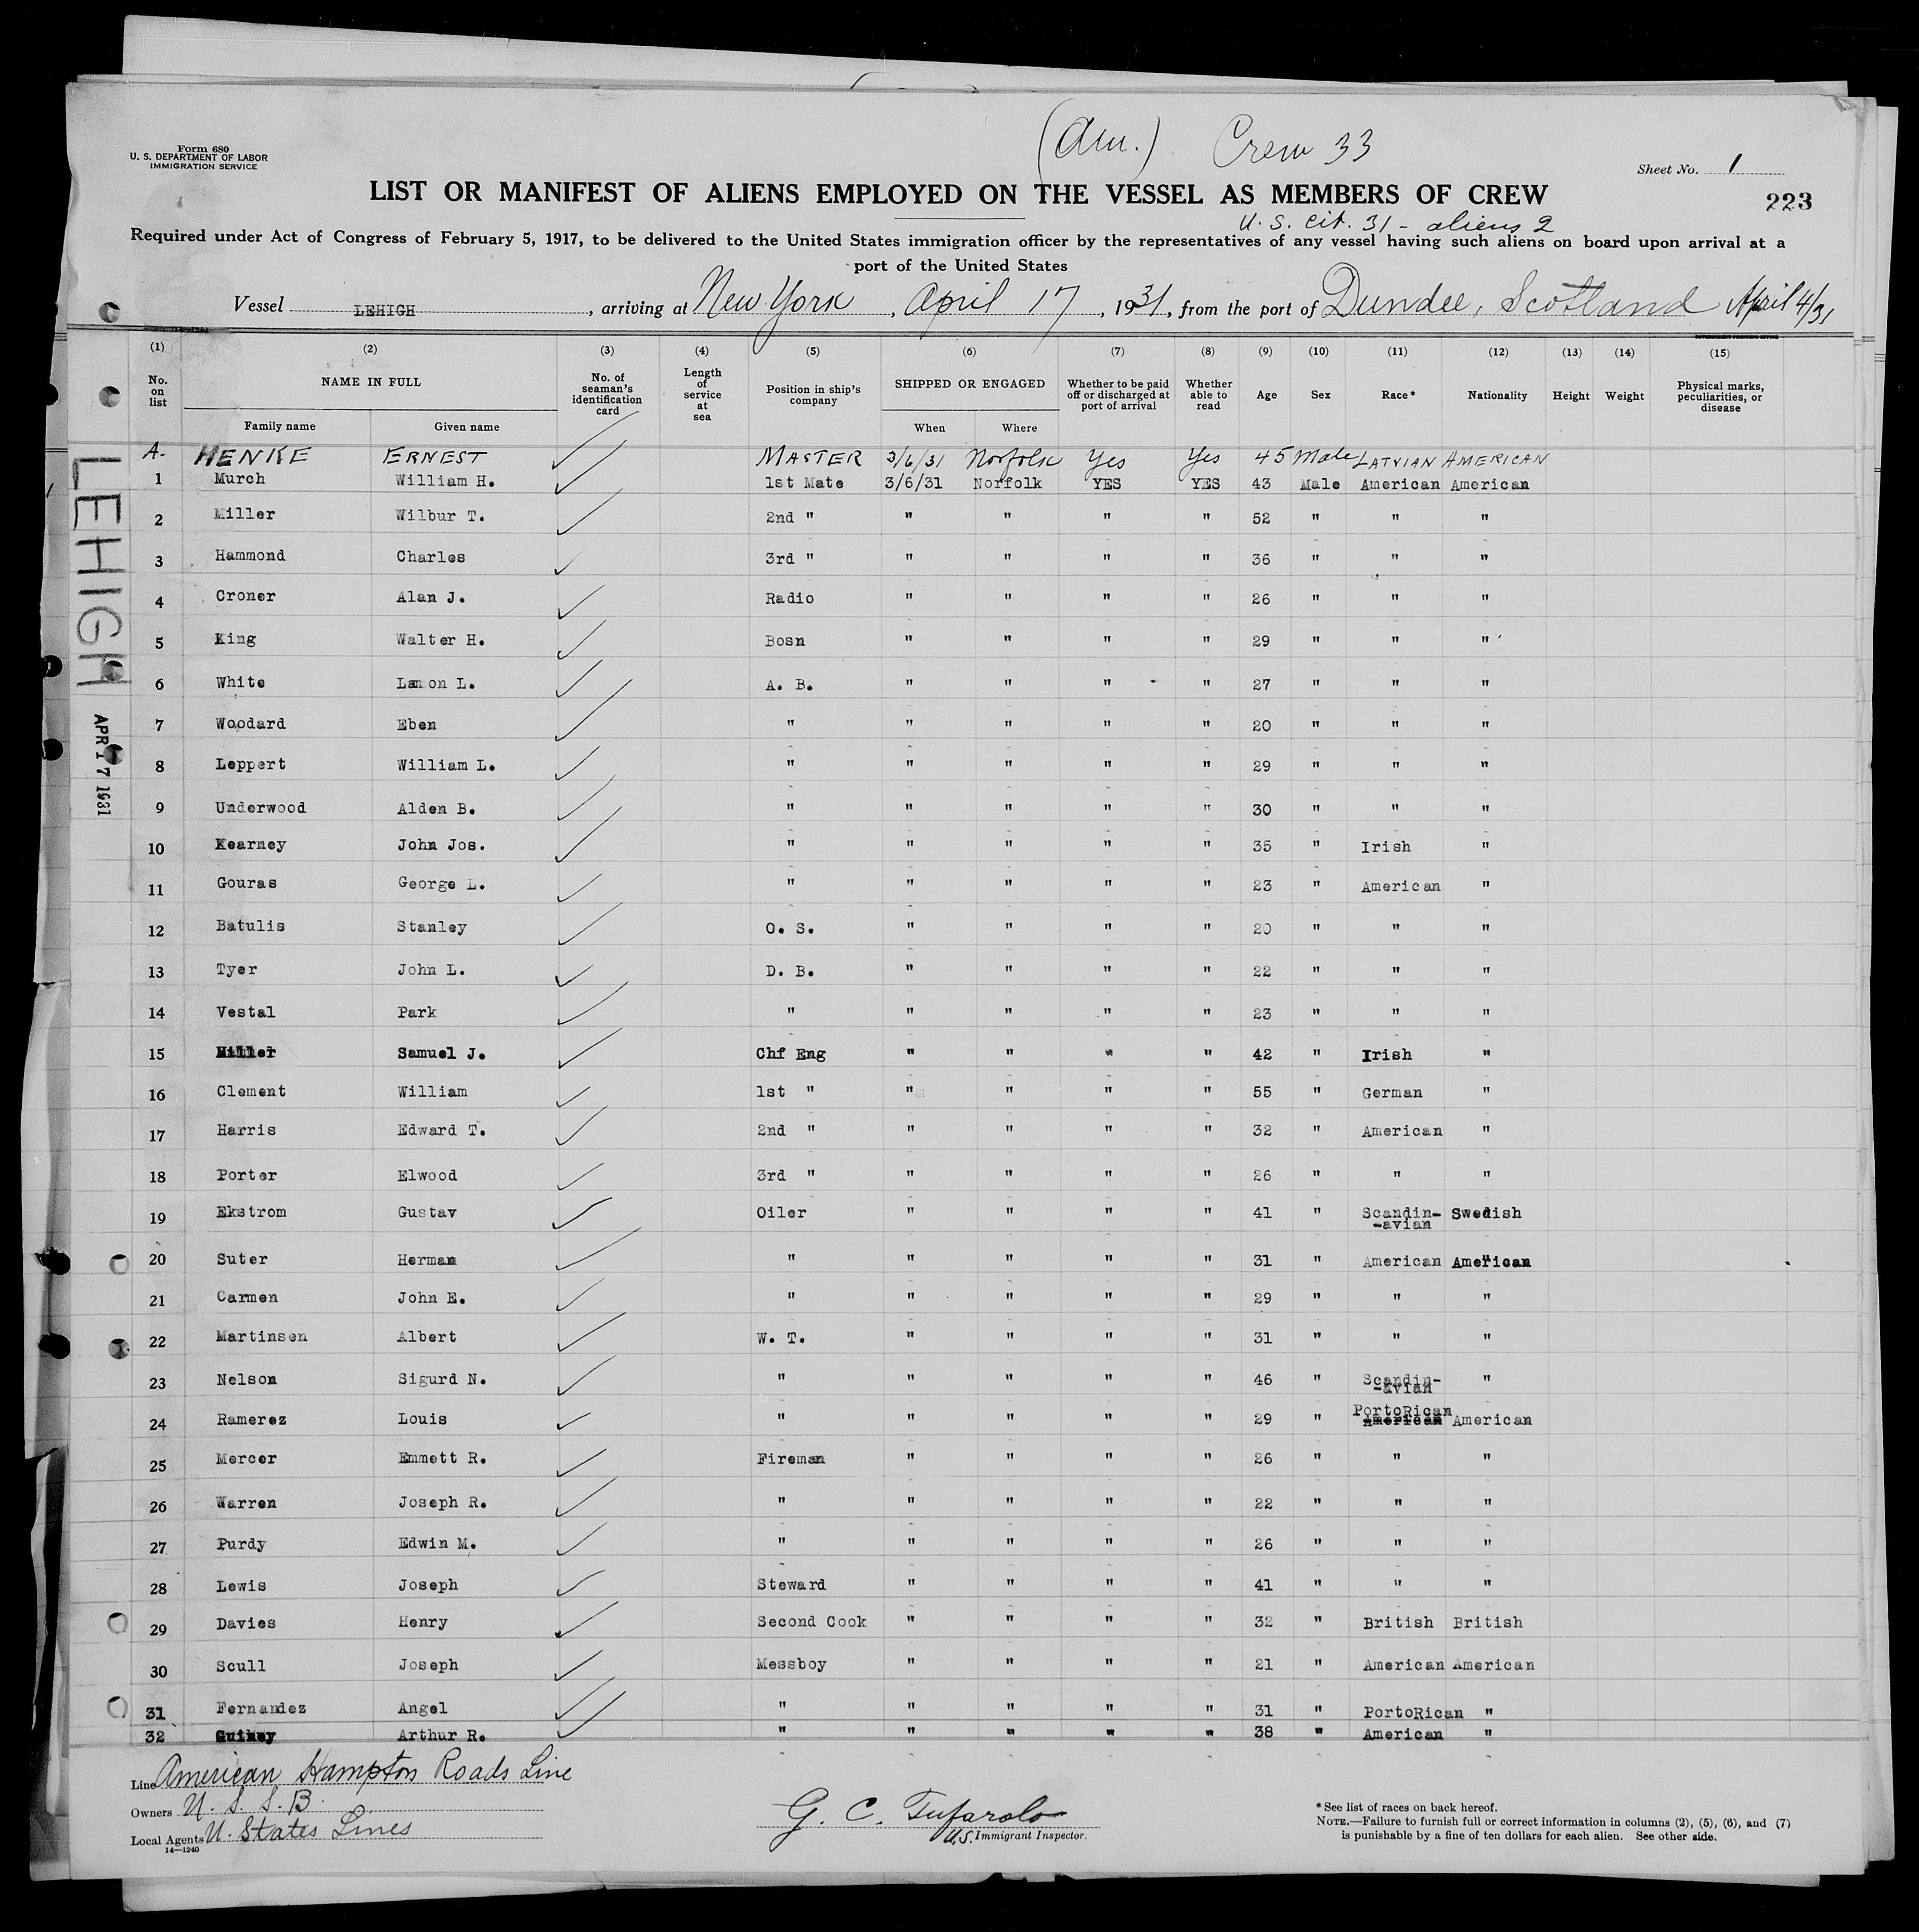 (Am.) Crew 33
Form 680
U. S. DEPARTMENT OF LABOR
IMMIGRATION SERVICE
Sheet No. 1
LIST OR MANIFEST OF ALIENS EMPLOYED ON THE VESSEL AS MEMBERS OF CREW
223
U. S. Cit. 31 - aliens 2
Required under Act of Congress of February 5, 1917, to be delivered to the United States immigration officer by the representatives of any vessel having such aliens on board upon arrival at a
port of the United States
Vessel LEHIGH, arriving at New York, April 17, 1931, from the port of Dundee, Scotland April 4/31
(1) (2) (3) (4) (5) (6) (7) (8) (9) (10) (11) (12) (13) (14) (15)
No. on list NAME IN FULL No. of seaman's identification card Length of service at sea Position in ship's company SHIPPED OR ENGAGED Whether to be paid off or discharged at port of arrival Whether able to read Age Sex Race* Nationality Height Weight Physical marks, peculiarities, or disease
Family name Given name When Where
A. HENKE ERNEST MASTER 3/6/31 Norfolk Yes Yes 45 Male LATVIAN AMERICAN
1 Murch William H. 1st Mate 3/6/31 Norfolk YES YES 43 Male American American
2 Miller Wilbur T. 2nd " " " " " 52 " " "
3 Hammond Charles 3rd " " " " " 36 " " "
4 Croner Alan J. Radio " " " " 26 " " "
5 King Walter H. Bosn " " " " 29 " " "
6 White Lamon L. A. B. " " " " 27 " " "
7 Woodard Eben " " " " " 20 " " "
8 Leppert William L. " " " " " 29 " " "
9 Underwood Alden B. " " " " " 30 " " "
10 Kearney John Jos. " " " " " 35 " Irish "
11 Gouras George L. " " " " " 23 " American "
12 Batulis Stanley O. S. " " " " 20 " " "
13 Tyer John L. D. B. " " " " 22 " " "
14 Vestal Park " " " " " 23 " " "
15 Miller Samuel J. Chf Eng " " " " 42 " Irish "
16 Clement William 1st " " " " " 55 " German "
17 Harris Edward T. 2nd " " " " " 32 " American "
18 Porter Elwood 3rd " " " " " 26 " " "
19 Ekstrom Gustav Oiler " " " " 41 " Scandin--avian Swedish
20 Suter Herman " " " " " 31 " American American
21 Carmen John E. " " " " " 29 " " "
22 Martinsen Albert W. T. " " " " 31 " " "
23 Nelson Sigurd N. " " " " " 46 " Scandin--avian "
24 Ramerez Louis " " " " " 29 " PortoRican American American
25 Mercer Emmett R. Fireman " " " " 26 " " "
26 Warren Joseph R. " " " " " 22 " " "
27 Purdy Edwin M. " " " " " 26 " " "
28 Lewis Joseph Steward " " " " 41 " " "
29 Davies Henry Second Cook " " " " 32 " British British
30 Scull Joseph Messboy " " " " 21 " American American
31 Fernandez Angel " " " " " 31 " PortoRican "
32 Arthur R. " " " " " 38 " American "
LEHIGH
APR 17 1931
Line American Hampton Roads Line
Owners U. S. S. B.
Local Agents U. States Lines
14—1240
G. C. Tufarolo
U.S. Immigrant Inspector.
* See list of races on back hereof.
NOTE.—Failure to furnish full or correct information in columns (2), (5), (6), and (7)
is punishable by a fine of ten dollars for each alien. See other side.